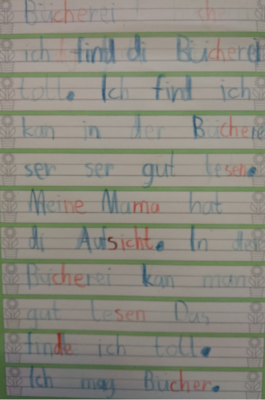 Bücherei
ich find di Bücherei
toll. Ich find ich
kan in der Bücherei
ser ser gut lesen.
Meine Mama hat
di Aufsicht. In der
Bücherei kan man
gut lesen Das
finde ich toll.
Ich mag Bücher.